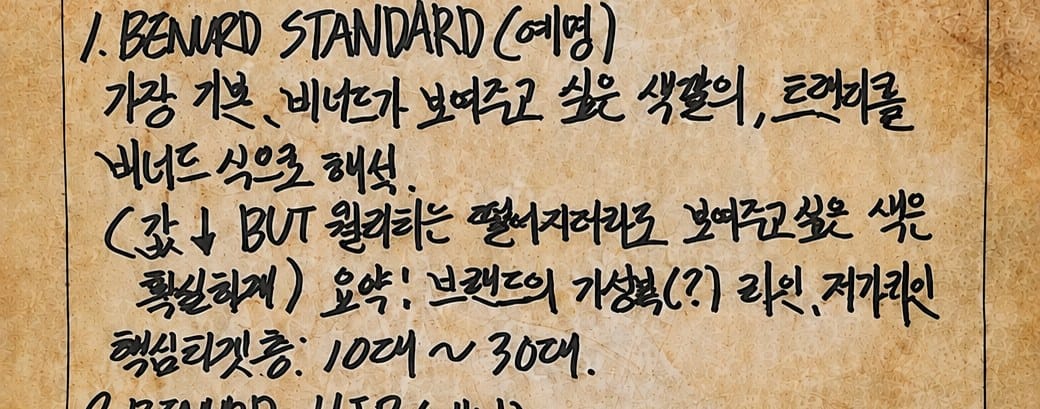 1. BENURD STANDARD (예명)
가장 기본, 비너드가 보여주고 싶은 색깔의, 트랜디를
비너드 식으로 해석.
(값↓ BUT 퀄리티는 떨어지더라도 보여주고 싶은 색은
확실하게) 요약: 브랜드의 기성복(?) 라인, 저가라인
핵심타겟층: 10대 ~ 30대.
2. BENURD